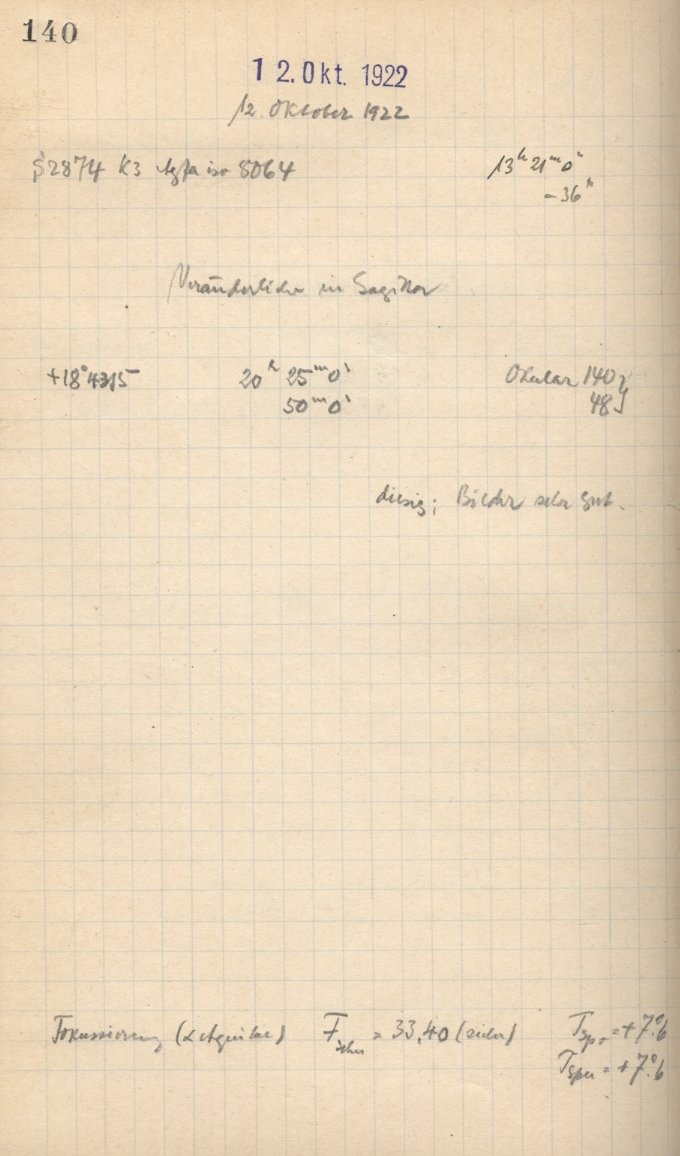 140
12. Okt. 1922
12. Oktober 1922
S2874 K3 Agfa iso 8064 13ʰ 21ᵐ 0ˢ
-36ˢ
Veränderliche in Sagittar
+18°4315 20ʰ 25ᵐ 0ˢ Okular 140
50ᵐ 0ˢ 48
diesig; Bilder sehr gut.
Fokussierung (α Aquilae) F = 33,40 T = +7.°6
T = +7.°6